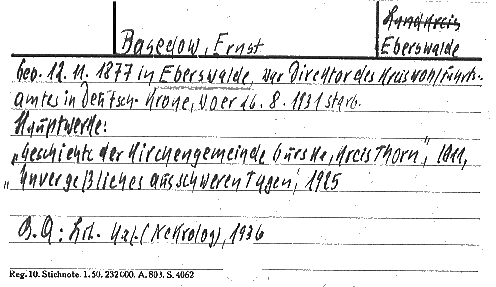 Landkreis
Basedow, Ernst
Eberswalde
Geb. 12. 11. 1877 in Eberswalde, war Direktor des Kreiswohlfahrts-
amtes in Deutsch-Krone, wo er 26. 8. 1931 starb.
Hauptwerke:
„Geschichte der Kirchengemeinde Gurske, Kreis Thorn“, 1911,
„Unvergeßliches aus schweren Tagen“, 1925
B. A: Hal. (Nekrolog), 1936
Reg. 10. Stichnote. 1. 50. 232000. A. 803. S. 4062